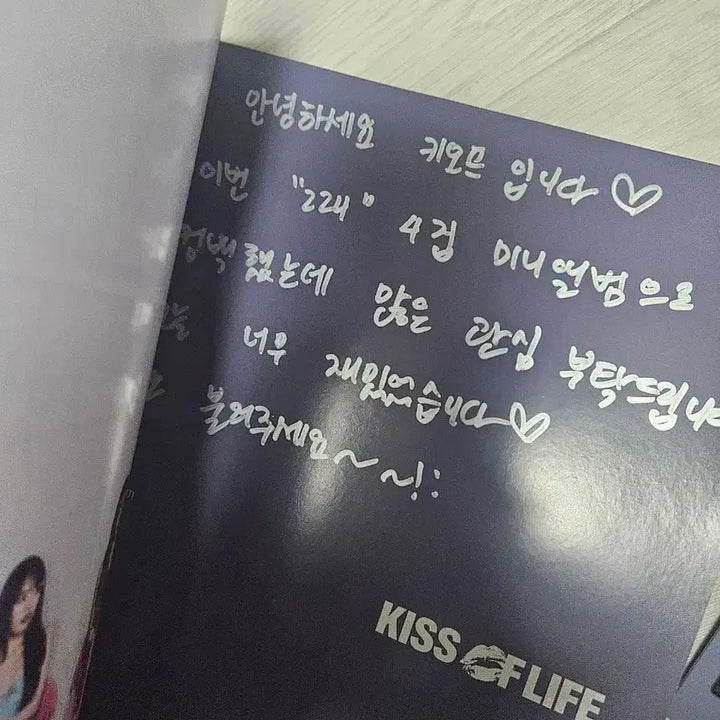 안녕하세요 키오프 입니다♡
이번 "그래" 4집 미니앨범으로
컴백했는데 많은 관심 부탁드립니다
너무 재밌었습니다♡
불러주세요~~!:
KISS OF LIFE